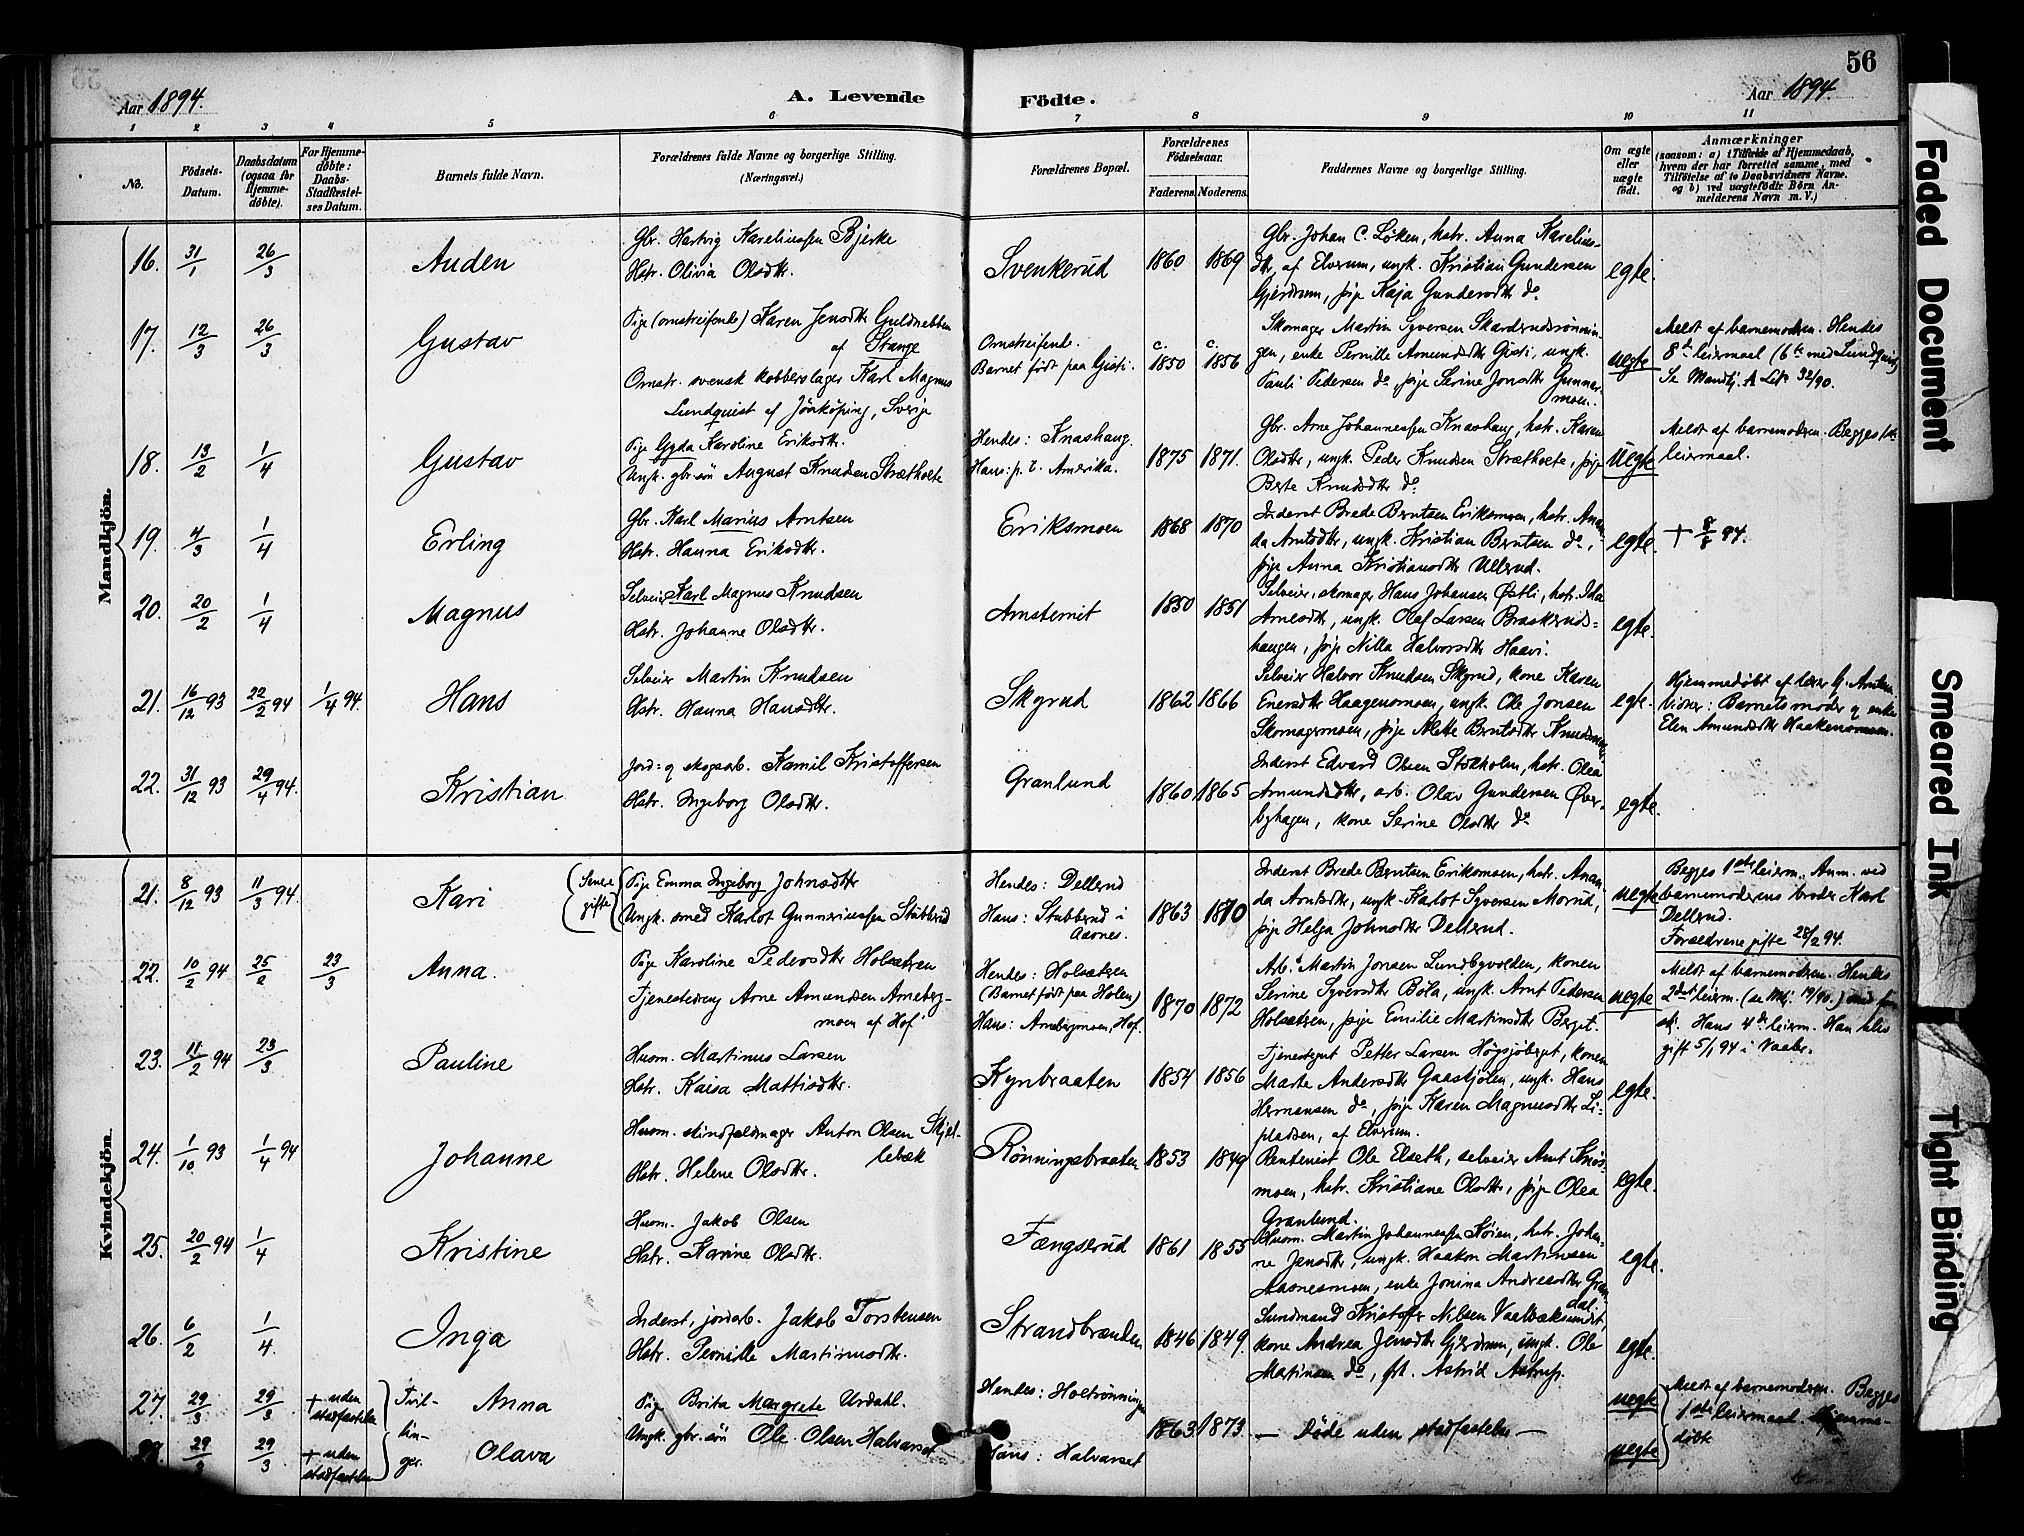 56
Aar 1894.
A. Levende Födte.
Aar 1894.
1 2 3 4 5 6 7 8 9 10 11
No.
Födsels-Datum.
Daabsdatum (ogsaa for Hjemme-döbte).
For Hjemme-döbte: Daabs-Stadfæstel-ses Datum.
Barnets fulde Navn.
Forældrenes fulde Navne og borgerlige Stilling.
(Næringsvei.)
Forældrenes Bopæl.
Forældrenes Födselsaar.
Faderens. Moderens.
Faddernes Navne og borgerlige Stilling.
Om ægte eller uægte födt.
Anmærkninger
(saasom: a) i Tilfælde af Hjemmedaab,
hvem der har forrettet samme, med
Tilföielse af to Daabsvidners Navne,
og b) ved uægtefödte Börn An-
melderens Navn m. V.)
Mandkjön.
16. 31/1 26/3 Auden
Gbr. Hartvig Kareliussen Bjerke
Hstr. Olivia Olsdtr.
Svenkerud 1860 1869
Gbr. Johan C. Löken, hstr. Anna Karelius-
dtr. af Elverum, ungk. Kristian Gundersen
Gjerdrum, pige Kaja Gundersdtr do
egte.
17. 12/3 26/3 Gustav
Pige (omstreifende) Karen Jensdtr Guldnebben
af Stange
Omstr. svensk kobberslager Karl Magnus
Lundquist af Jönköping, Sverige
Omstreifende.
Barnet født paa Gisti.
c. 1850 c. 1856
Skomager Martin Syversen Skarderudsrønnin-
gen, enke Pernille Amundsdtr Gisti, ungk.
Pauli Pedersen do, pige Serine Jonsdtr Gunnar-
moen.
uegte
Meldt af barnemoderen. Hendes
8de leiermaal (6te med Lundquist)
Se Mandkj. A Litr 32/90.
18. 13/2 1/4 Gustav
Pige Gyda Karoline Eriksdtr.
Ungk. gbr. sön August Knudsen Strætkvete
Hendes: Knashaug.
Hans: p. t. Amerika.
1875 1871.
Gbr. Arne Johannessen Knashaug, hstr. Karen
Olsdtr, ungk. Peder Knudsen Strætkvete, pige
Berte Knudsdtr do
Uegte
Meldt af barnemoderen. Begges 1ste
leiermaal.
19. 4/3 1/4 Erling
Gbr. Karl Marius Arntsen
Hstr. Hanna Eriksdtr.
Eriksmoen 1868 1870
Inderst Brede Berntsen Eriksmoen, hstr. Anan-
da Arntsdtr, ungk. Kristian Berntsen do,
pige Anna Kristiansdtr Ullerud.
egte.
† 8/8 94.
20. 20/2 1/4 Magnus
Selveier Karl Magnus Knudsen
Hstr. Johanne Olsdtr.
Arnsternit 1850 1851
Selveier, skomager Hans Johansen Østli, hstr. Ida
Arnesdtr, ungk. Olaf Larsen Braskeruds-
haugen, pige Nilla Halvorsdtr Haavi.
egte.
21. 16/12 93 22/2 94 1/4 94. Hans
Selveier Martin Knudsen
Hstr. Hanna Hansdtr.
Skyrud 1862 1866
Selveier Halvor Knudsen Skyrud, kone Karen
Enersdtr Haagenomoen, ungk. Ole Jonsen
Skomagermoen, pige Mette Berntsdtr Knudsmoen
egte.
Hjemmedøbt af lærer G. Arntsen
Vidner: Barnets moder og enke
Elen Amundsdtr Haakenomoen.
22. 31/12 93 29/4 94. Kristian
Jord- og skogsarb. Kamil Kristoffersen
Hstr. Ingeborg Olsdtr.
Granlund 1860 1865
Inderst Edvard Olsen Stokholm, hstr. Olea
Amundsdtr, arb. Olav Gundersen Øver-
byhagen, kone Serine Olsdtr do
egte.
Kvindekjön.
21. 8/12 93 11/3 94. Kari (Senere gifte)
Pige Emma Ingeborg Johnsdtr
Ungk. smed Karlot Gunneriussen Stubberud
Hendes: Dellerud
Hans: Stubberud i
Aasnes.
1863 1870
Inderst Brede Berntsen Eriksmoen, hstr. Anan-
da Arntsdtr, ungk. Karlot Syversen Morud,
pige Helga Johnsdtr Dellerud.
uegte
Begges 1ste leierm. Anm. ved
barnemoderens broder Karl
Dellerud.
Forældrene gifte 28/2 94.
22. 10/2 94 25/2 23/3 Anna.
Pige Karoline Pedersdtr Holsætren
Tjenestedreng Arne Amundsen Arneberg-
moen af Hof
Hendes: Holsætren
(Barnet født paa Holen)
Hans: Arnebergmoen, Hof.
1870 1872
Arb. Martin Jonsen Lundbyvolden, konen
Serine Syversdtr Böla, ungk. Arnt Pedersen
Holsætren, pige Emilie Martinsdtr Berget.
uegte
Meldt af barnemoderen. Hendes
2det leierm. (se Mkj. 19/90.)
Hans 4de leierm. Han blev
gift 5/1 94 i Vaaler.
23. 11/2 94 23/3 Pauline
Husm. Martinus Larsen
Hstr. Kaisa Mattisdtr.
Kynbraaten 1854 1856
Tjenestegut Petter Larsen Høgsjøberget, konen
Marte Andersdtr Gaastjølen, ungk. Hans
Hermansen do, pige Karen Magnusdtr Li-
pladsen, af Elverum.
egte.
24. 1/10 93 1/4 94 Johanne
Husm. skindfeldmager Anton Olsen Skjæl-
lebæk
Hstr. Helene Olsdtr.
Rönningsbraaten 1853 1849
Rentenist Ole Elseth, selveier Arnt Knøs-
moen, hstr. Kristiane Olsdtr, pige Olea
Granlund.
egte.
25. 20/2 94 1/4 Kristine
Husm. Jakob Olsen
Hstr. Karine Olsdtr.
Fængserud 1861 1855
Husm. Martin Johannessen Køien, hstr. Johan-
ne Jensdtr, ungk. Haakon Martinusen
Aasnesmoen, enke Jonina Andreasdtr Gran-
dal.
egte.
26. 6/2 1/4. Inga
Inderst, jordarb. Jakob Torstensen
Hstr. Pernille Martinusdtr.
Strandbrænden 1846 1849.
Sundmand Kristoffer Nilsen Vaalbæksundet,
kone Andrea Jensdtr Gjerdrum, ungk. Ole
Martinsen do, frk. Astrid Astrup.
egte.
27. 29/3 29/3 † uden stadfæstelse
Tvil-
lin-
ger.
Anna
Pige Brita Margrete Urdahl.
Ungk. gbr. sön Ole Olsen Halvarset
Hendes: Holtrønningen
Hans: Halvarset
1863 1873.
— Døde uden stadfæstelse —
uegte
Meldt af barnemoderen. Begges
1ste leiermaal. Hjemme-
døbt
28. 29/3 29/3 † uden stadfæstelse Olava
uegte
Faded Document
Smeared Ink
Tight Binding